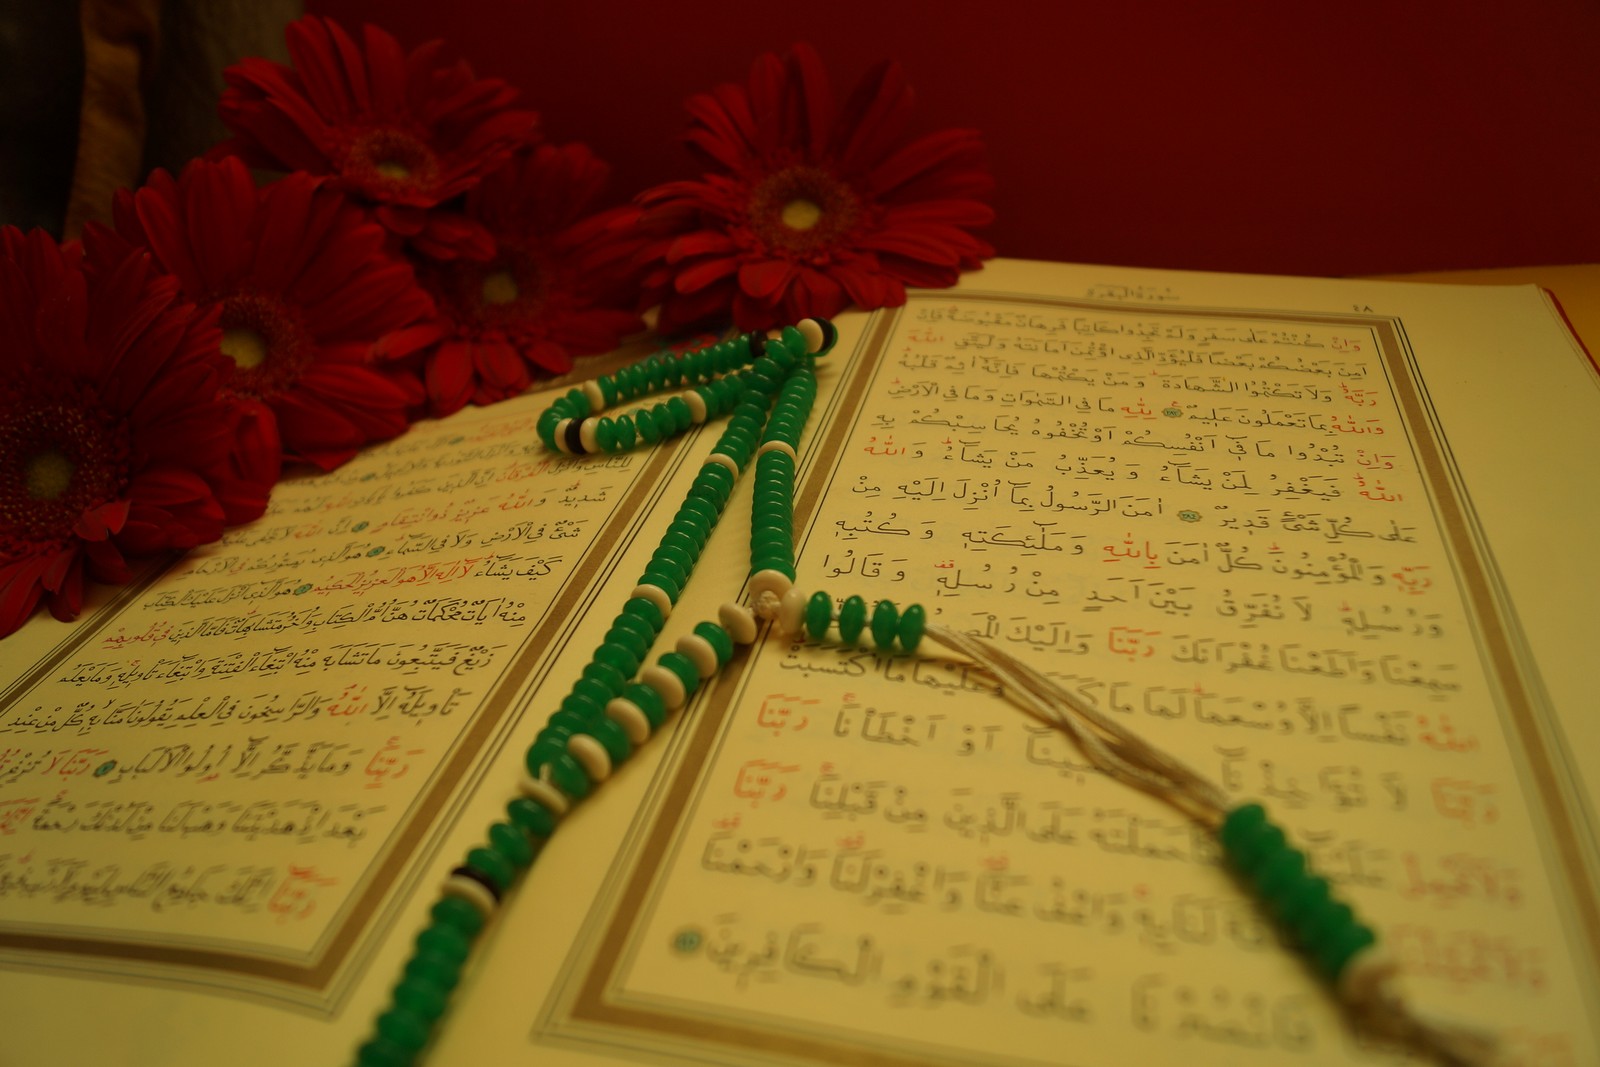 سُورَةُ الْبَقَرَةِ ٤٨
وَاِنْ كُنْتُمْ عَلٰى سَفَرٍ وَلَمْ تَجِدُوا كَاتِبًا فَرِهَانٌ مَقْبُوضَةٌ فَاِنْ
اَمِنَ بَعْضُكُمْ بَعْضًا فَلْيُؤَدِّ الَّذِى اؤْتُمِنَ اَمَانَتَهُ وَلْيَتَّقِ اللّٰهَ
رَبَّهُ وَلَا تَكْتُمُوا الشَّهَادَةَ وَمَنْ يَكْتُمْهَا فَاِنَّهُ اٰثِمٌ قَلْبُهُ
وَاللّٰهُ بِمَا تَعْمَلُونَ عَلِيمٌ لِلّٰهِ مَا فِى السَّمٰوَاتِ وَمَا فِى الْاَرْضِ
وَاِنْ تُبْدُوا مَا فِى اَنْفُسِكُمْ اَوْ تُخْفُوهُ يُحَاسِبْكُمْ بِهِ
اللّٰهُ فَيَغْفِرُ لِمَنْ يَشَاءُ وَيُعَذِّبُ مَنْ يَشَاءُ وَاللّٰهُ
عَلٰى كُلِّ شَىْءٍ قَدِيرٌ اٰمَنَ الرَّسُولُ بِمَا اُنْزِلَ اِلَيْهِ مِنْ
رَبِّهِ وَالْمُؤْمِنُونَ كُلٌّ اٰمَنَ بِاللّٰهِ وَمَلٰئِكَتِهِ وَكُتُبِهِ
وَرُسُلِهِ لَا نُفَرِّقُ بَيْنَ اَحَدٍ مِنْ رُسُلِهِ وَقَالُوا
سَمِعْنَا وَاَطَعْنَا غُفْرَانَكَ رَبَّنَا وَاِلَيْكَ
اللّٰهُ نَفْسًا اِلَّا وُسْعَهَا لَهَا مَا وَعَلَيْهَا مَا اكْتَسَبَتْ
رَبَّنَا لَا اَوْ اَخْطَأْنَا رَبَّنَا
وَلَا تَحْمِلْ حَمَلْتَهُ عَلَى الَّذِينَ مِنْ قَبْلِنَا رَبَّنَا
لَنَا بِهِ وَاعْفُ عَنَّا وَاغْفِرْ لَنَا وَارْحَمْنَا
فَانْصُرْنَا عَلَى الْقَوْمِ الْكَافِرِينَ
لِلنَّاسِ وَاَنْزَلَ الْفُرْقَانَ اِنَّ الَّذِينَ كَفَرُوا
شَدِيدٌ وَاللّٰهُ عَزِيزٌ ذُو انْتِقَامٍ اِنَّ اللّٰهَ لَا يَخْفٰى عَلَيْهِ
شَىْءٌ فِى الْاَرْضِ وَلَا فِى السَّمَاءِ هُوَ الَّذِى يُصَوِّرُكُمْ فِى الْاَرْحَامِ
كَيْفَ يَشَاءُ لَا اِلٰهَ اِلَّا هُوَ الْعَزِيزُ الْحَكِيمُ هُوَ الَّذِى اَنْزَلَ عَلَيْكَ الْكِتَابَ
مِنْهُ اٰيَاتٌ مُحْكَمَاتٌ هُنَّ اُمُّ الْكِتَابِ وَاُخَرُ مُتَشَابِهَاتٌ فَاَمَّا الَّذِينَ فِى قُلُوبِهِمْ
زَيْغٌ فَيَتَّبِعُونَ مَا تَشَابَهَ مِنْهُ ابْتِغَاءَ الْفِتْنَةِ وَابْتِغَاءَ تَأْوِيلِهِ وَمَا يَعْلَمُ
تَأْوِيلَهُ اِلَّا اللّٰهُ وَالرَّاسِخُونَ فِى الْعِلْمِ يَقُولُونَ اٰمَنَّا بِهِ كُلٌّ مِنْ عِنْدِ
رَبِّنَا وَمَا يَذَّكَّرُ اِلَّا اُولُوا الْاَلْبَابِ رَبَّنَا لَا تُزِغْ
بَعْدَ اِذْ هَدَيْتَنَا وَهَبْ لَنَا مِنْ لَدُنْكَ رَحْمَةً
رَبَّنَا اِنَّكَ جَامِعُ النَّاسِ